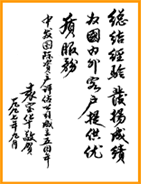 总结经验发扬成绩
为国内外客户提供优
质服务
中发国际资产评估公司成立五周年
袁宝华敬贺
一九九七年九月